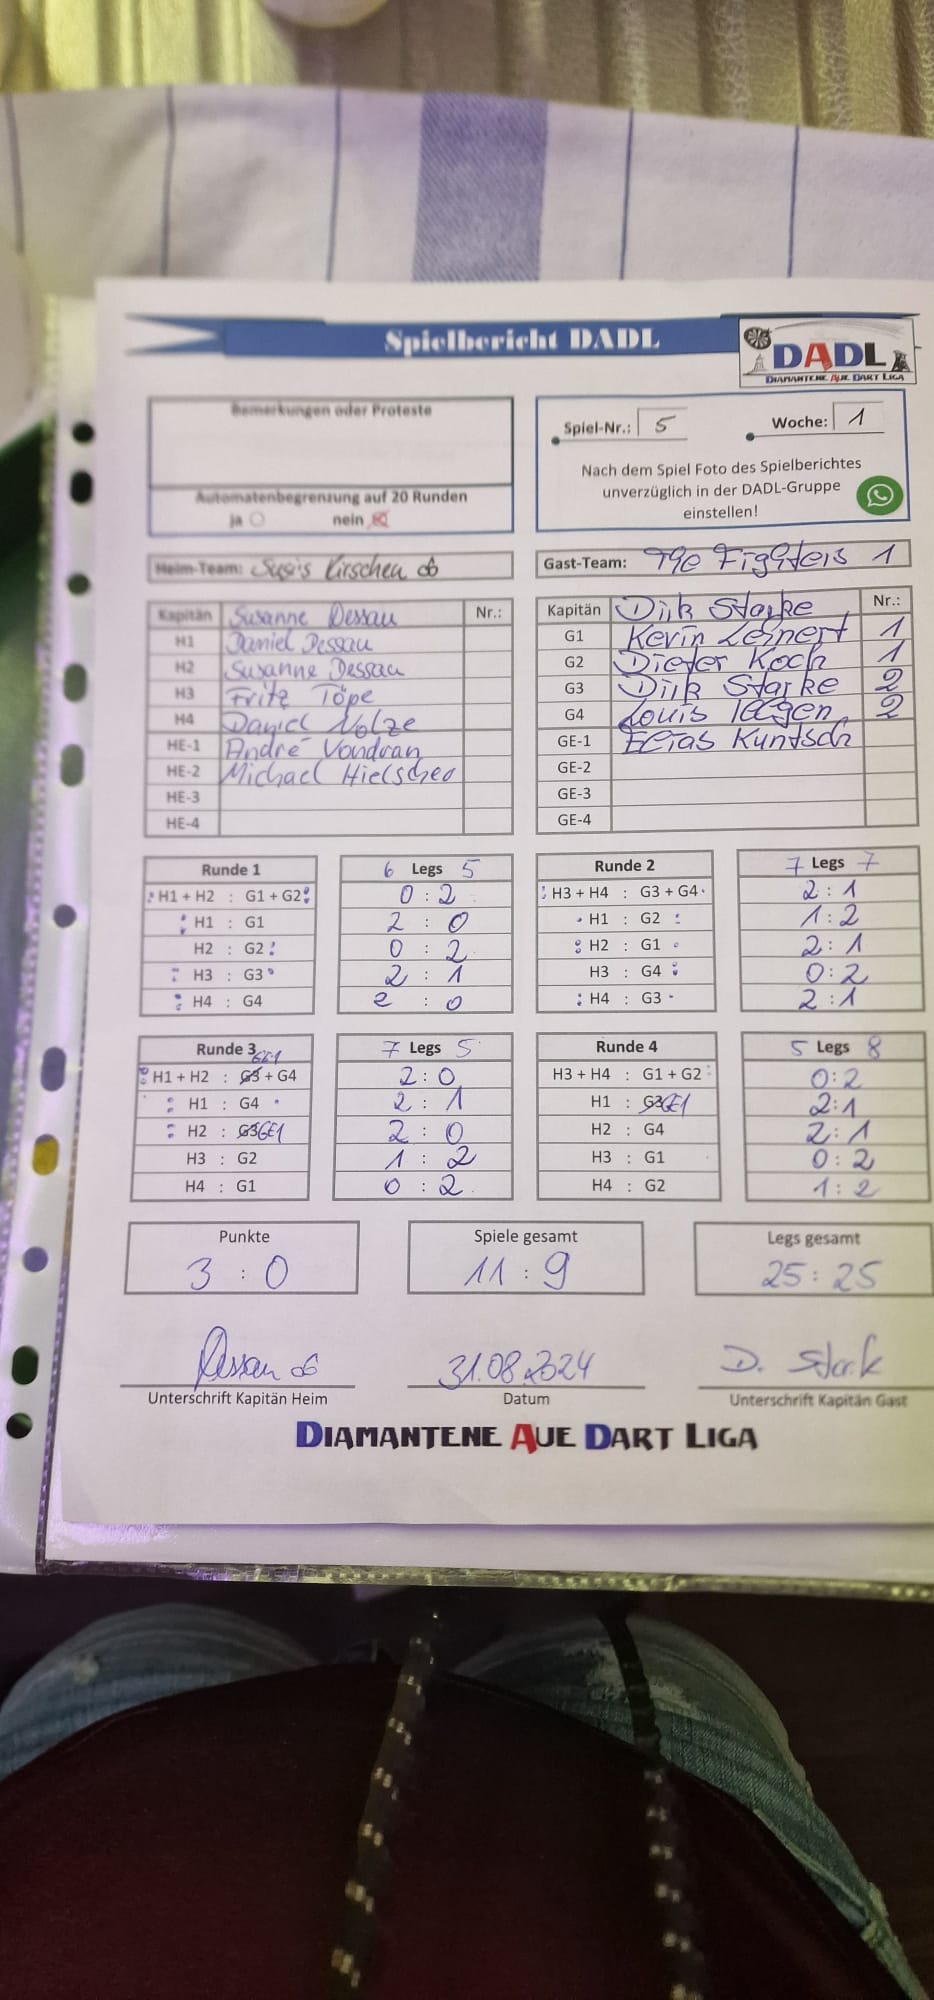 Spielbericht DADL
DADL
DIAMANTENE AUE DART LIGA
Bemerkungen oder Proteste
Automatenbegrenzung auf 20 Runden
ja nein
Spiel-Nr.: 5 Woche: 1
Nach dem Spiel Foto des Spielberichtes
unverzüglich in der DADL-Gruppe
einstellen!
Heim-Team: Susis Kirschen
Gast-Team: The Fighters 1
Kapitän Susanne Dessau Nr.:
H1 Daniel Dessau
H2 Susanne Dessau
H3 Fritz Töpe
H4 Daniel Nolze
HE-1 André Vondran
HE-2 Michael Hielscher
HE-3
HE-4
Kapitän Dirk Starke Nr.:
G1 Kevin Leinert 1
G2 Dieter Koch 1
G3 Dirk Starke 2
G4 Louis 2
GE-1 Elias Kuntsch
GE-2
GE-3
GE-4
Runde 1 6 Legs 5
H1 + H2 : G1 + G2 0 : 2
H1 : G1 2 : 0
H2 : G2 0 : 2
H3 : G3 2 : 1
H4 : G4 2 : 0
Runde 2 7 Legs 7
H3 + H4 : G3 + G4 2 : 1
H1 : G2 1 : 2
H2 : G1 2 : 1
H3 : G4 0 : 2
H4 : G3 2 : 1
Runde 3 7 Legs 5
GE1
H1 + H2 : G3 + G4 2 : 0
H1 : G4 2 : 1
H2 : G3 GE1 2 : 0
H3 : G2 1 : 2
H4 : G1 0 : 2
Runde 4 5 Legs 8
H3 + H4 : G1 + G2 0 : 2
H1 : G3 GE1 2 : 1
H2 : G4 2 : 1
H3 : G1 0 : 2
H4 : G2 1 : 2
Punkte
3 : 0
Spiele gesamt
11 : 9
Legs gesamt
25 : 25
Dessau 31.08.2024 D. Stark
Unterschrift Kapitän Heim Datum Unterschrift Kapitän Gast
DIAMANTENE AUE DART LIGA